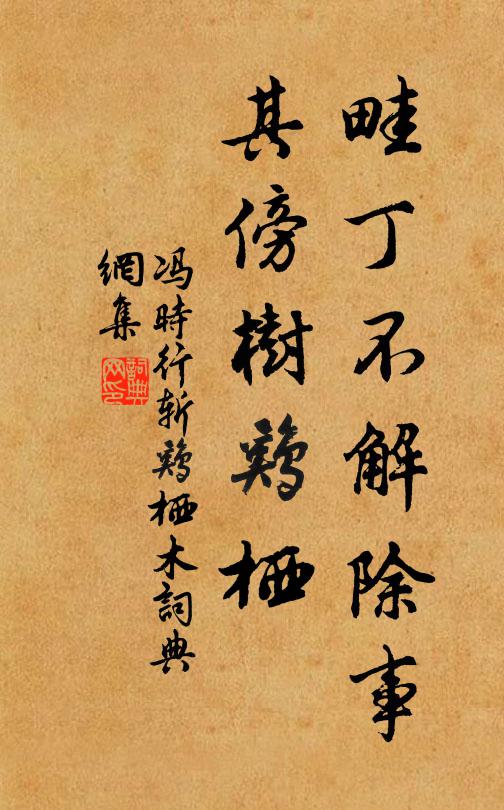 畦丁不解除事
其傍樹鷄栖
冯時行斩鷄栖木詞典
網集
詞典
网印